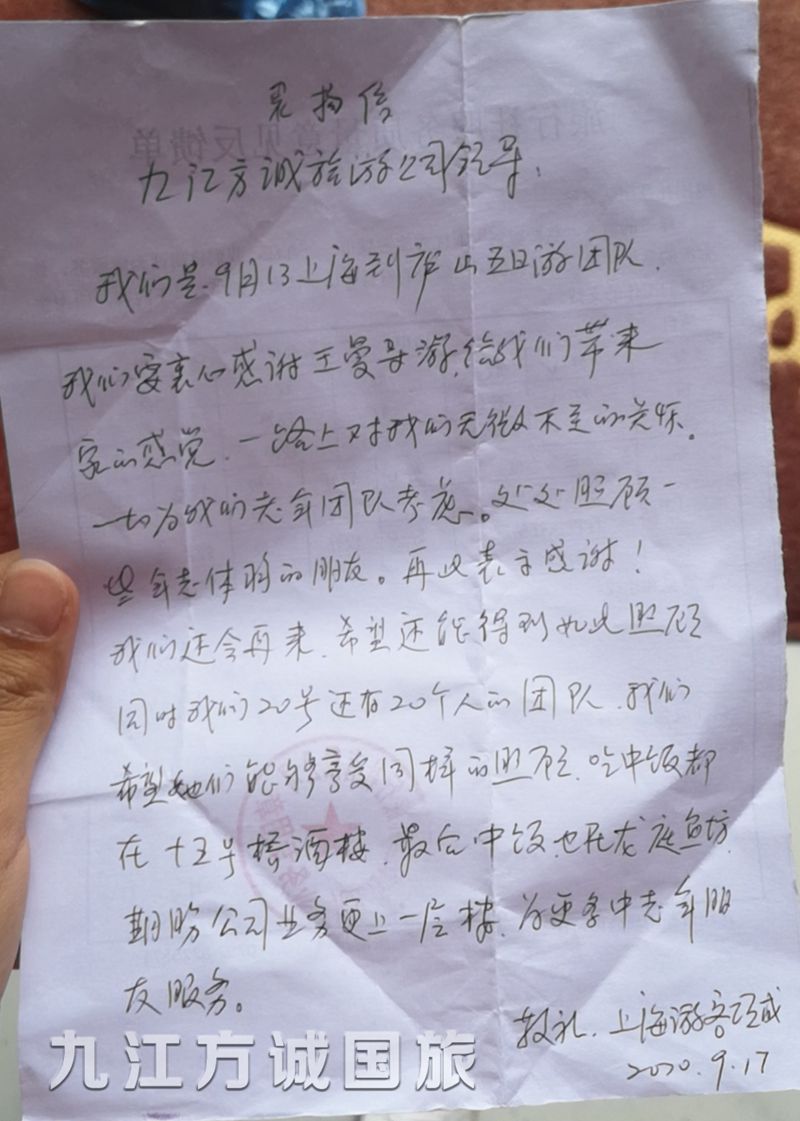 表扬信
九江方诚旅游公司领导,
我们是9月13上海到庐山五日游团队.
我们要衷心感谢王曼导游,给我们带来
家的感觉.一路上对我们无微不至的关怀。
一切为我们老年团队考虑。处处照顾一
些年老体弱的朋友。再此表示感谢!
我们还会再来.希望还能得到如此照顾
同时我们20号还有20个人的团队.我们
希望她们能够享受同样的照顾.吃中饭都
在十五号桥酒楼.最后中饭也在龙庭鱼坊.
期盼公司业务更上一层楼.为更多中老年朋
友服务。
敬礼.上海游客
2020.9.17
九江方诚国旅
意见反馈单